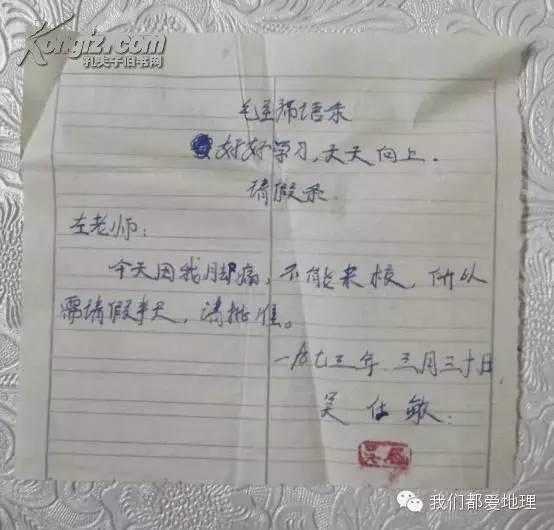 Kongfz.com
孔夫子旧书网
毛主席语录
好好学习,天天向上.
请假条.
左老师:
今天因我脚痛,不能来校,所以
需请假半天,请批准。
一九七三年 三月三十日
吴仕敏.
我们都爱地理